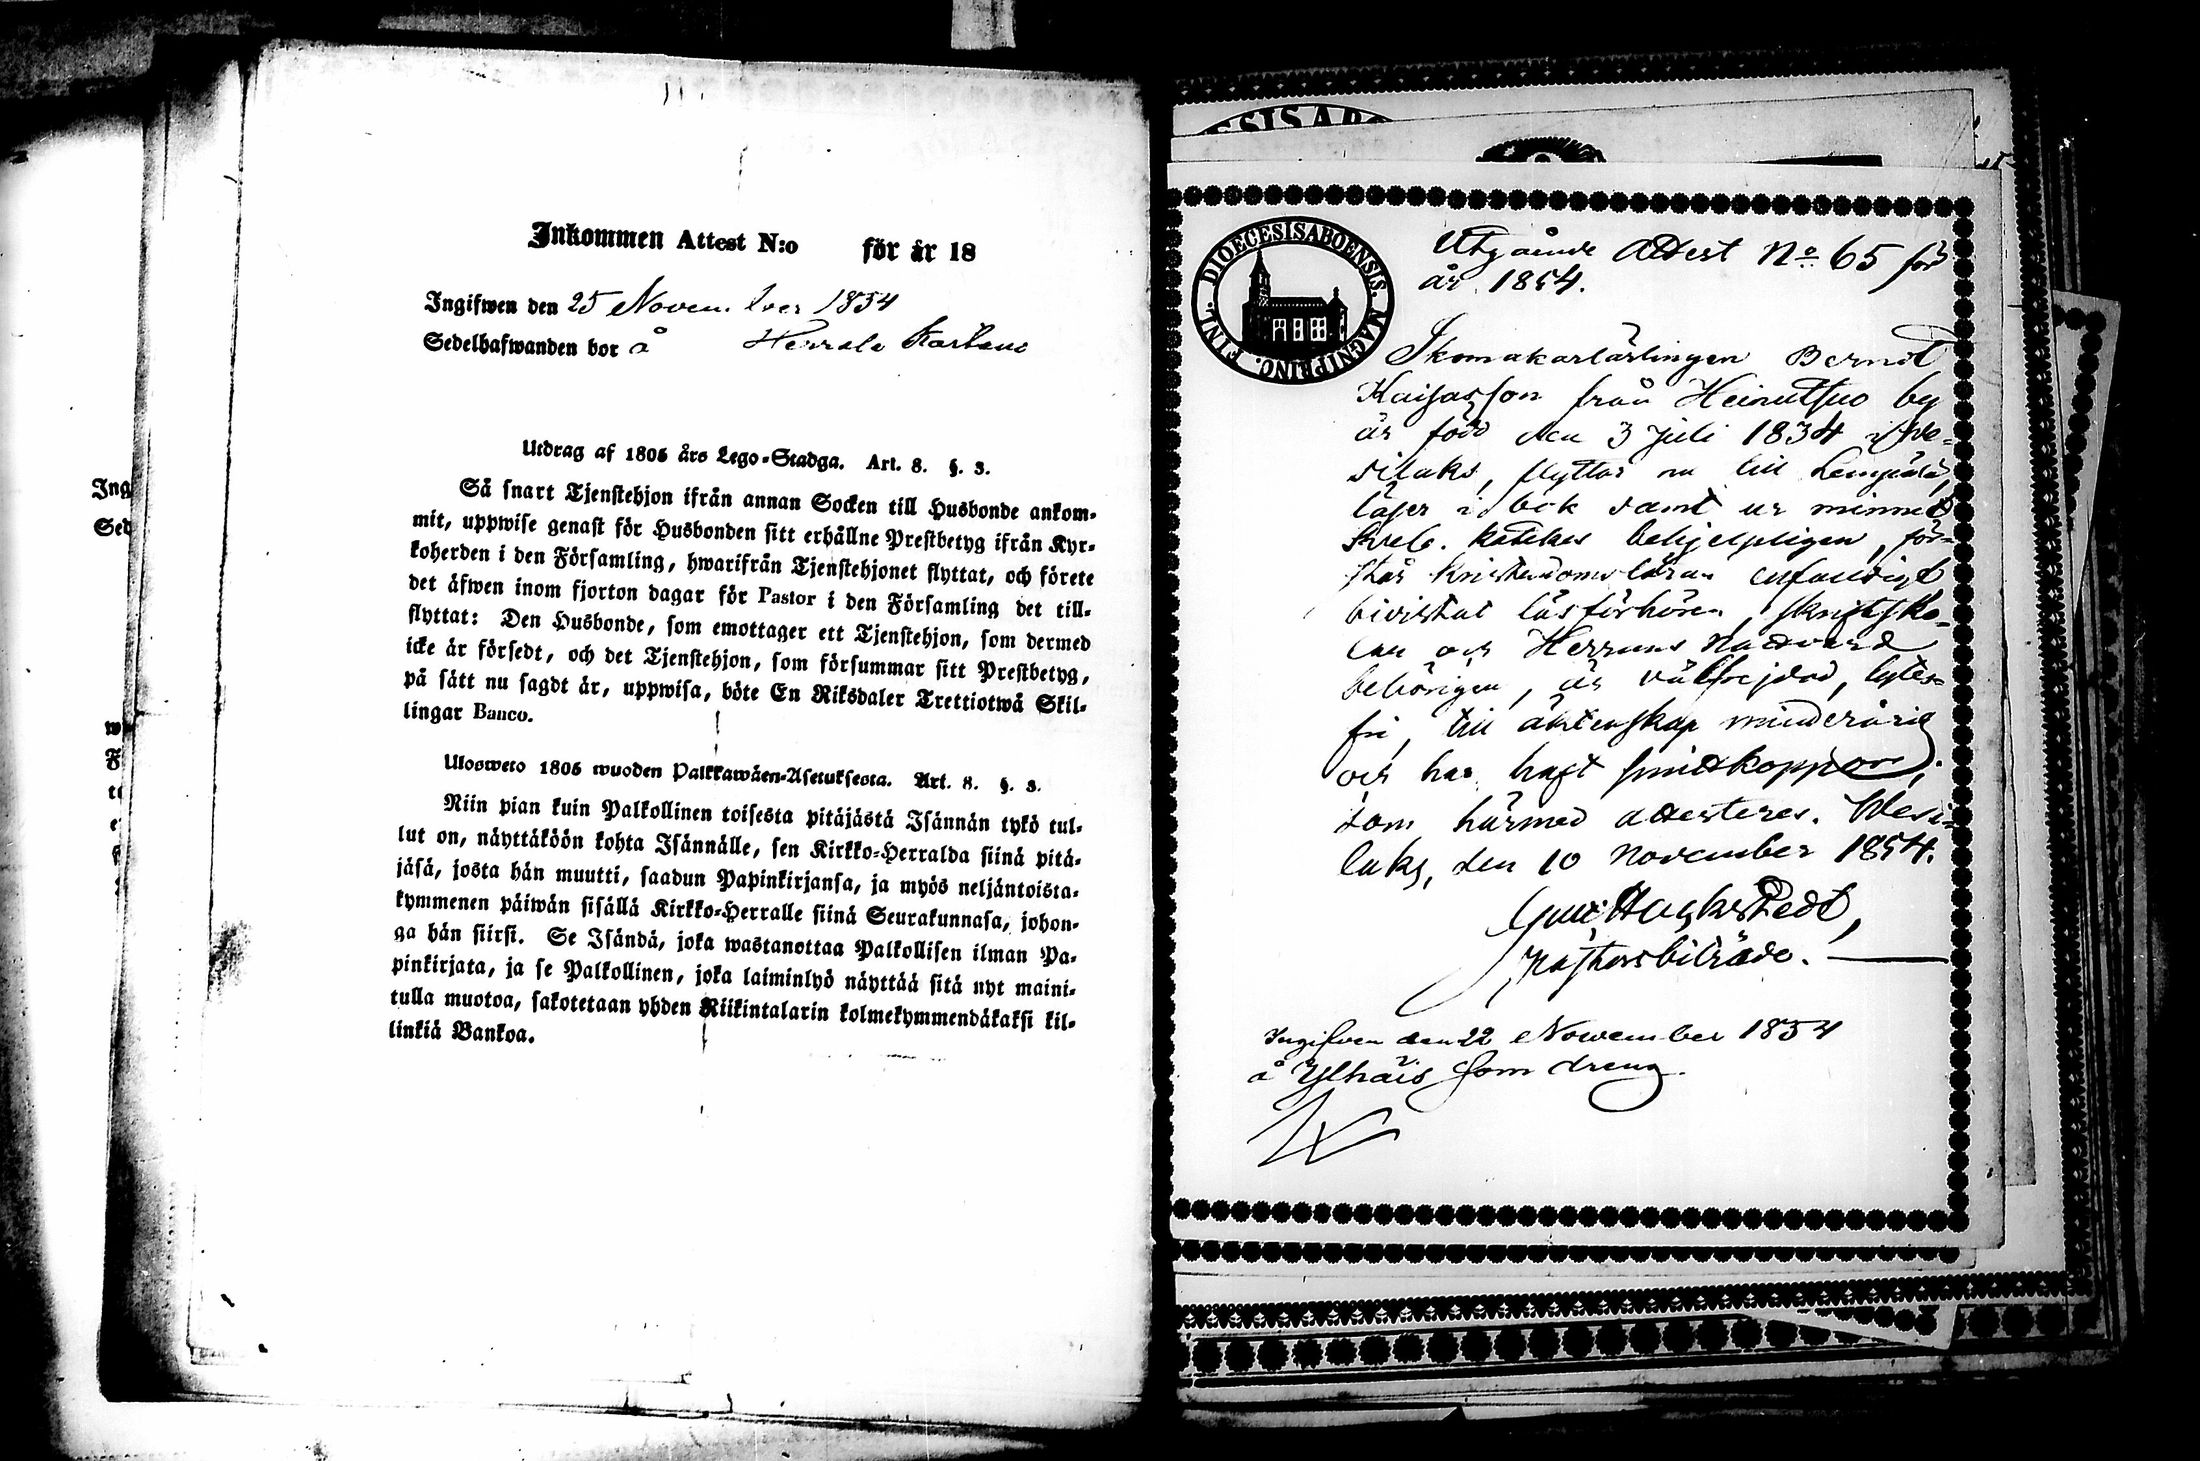 Inkommen Attest N:o för år 18
Ingifwen den 25 November 1854
Sedelhafwanden bor å Herrala
Utdrag af 1805 års Lego-Stadga. Art. 8. §. 3.
Så snart Tjenstehjon ifrån annan Socken till Husbonde ankom-
mit, uppwise genast för Husbonden sitt erhållne Prestbetyg ifrån Kyr-
koherden i den Församling, hwarifrån Tjenstehjonet flyttat, och förete
det äfwen inom fjorton dagar för Pastor i den Församling det till-
flyttat: Den Husbonde, som emottager ett Tjenstehjon, som dermed
icke är försedt, och det Tjenstehjon, som försummar sitt Prestbetyg,
på sätt nu sagdt är, uppwisa, böte En Riksdaler Trettiotwå Skil-
lingar Banco.
Ulosweto 1805 wuoden Palkkawäen-Asetuksesta. Art. 8. §. 3.
Niin pian kuin Palkollinen toisesta pitäjästä Isännän tykö tul-
lut on, näyttäköön kohta Isännälle, sen Kirkko-Herralda siinä pitä-
jäsä, josta hän muutti, saadun Papinkirjansa, ja myös neljäntoista-
kymmenen päiwän sisällä Kirkko-Herralle siinä Seurakunnasa, johon-
ga hän siirsi. Se Isändä, joka wastanottaa Palkollisen ilman Pa-
pinkirjata, ja se Palkollinen, joka laiminlyö näyttää sitä nyt maini-
tulla muotoa, sakotetaan yhden Riikintalarin kolmekymmendäkaksi kil-
linkiä Bankoa.
Ing
Sed
ESIS ABO
DIOECESIS ABOENSIS. MAGN. PRINC. FINL.
Utgående Attest No 65 för
år 1854.
Skomakarlärlingen Bernd
Kaisasson från Heinutsuo by
är född den 3 Juli 1834 i We-
silaks, flyttar nu till Lempäälä,
läser i bok samt ur minnet
Sveb. Katekes behjelpligen, för-
står kristendomsläran enfaldigt
bivistat läsförhören, skriftsko-
lan och Herrans Nattvard
behörigen, är välfrejdad, lytes-
fri, till äktenskap minderårig
och har haft smittkoppor;
som härmed attesteres. Wesi-
laks, den 10 November 1854.
Pastorsbiträde.
Ingifven den 22 November 1854
å Ylhäis som dreng.